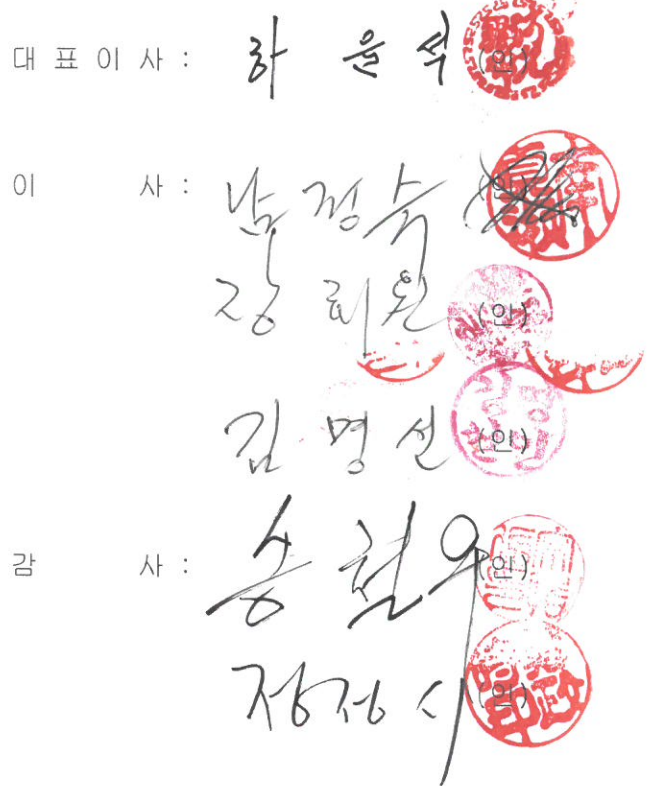 대 표 이 사 : 하 윤 석 (인)
이 사 : 남 정 숙
장 희 원 (인)
김 명 선 (인)
감 사 : 송 현 우 (인)
정 정 시 (인)